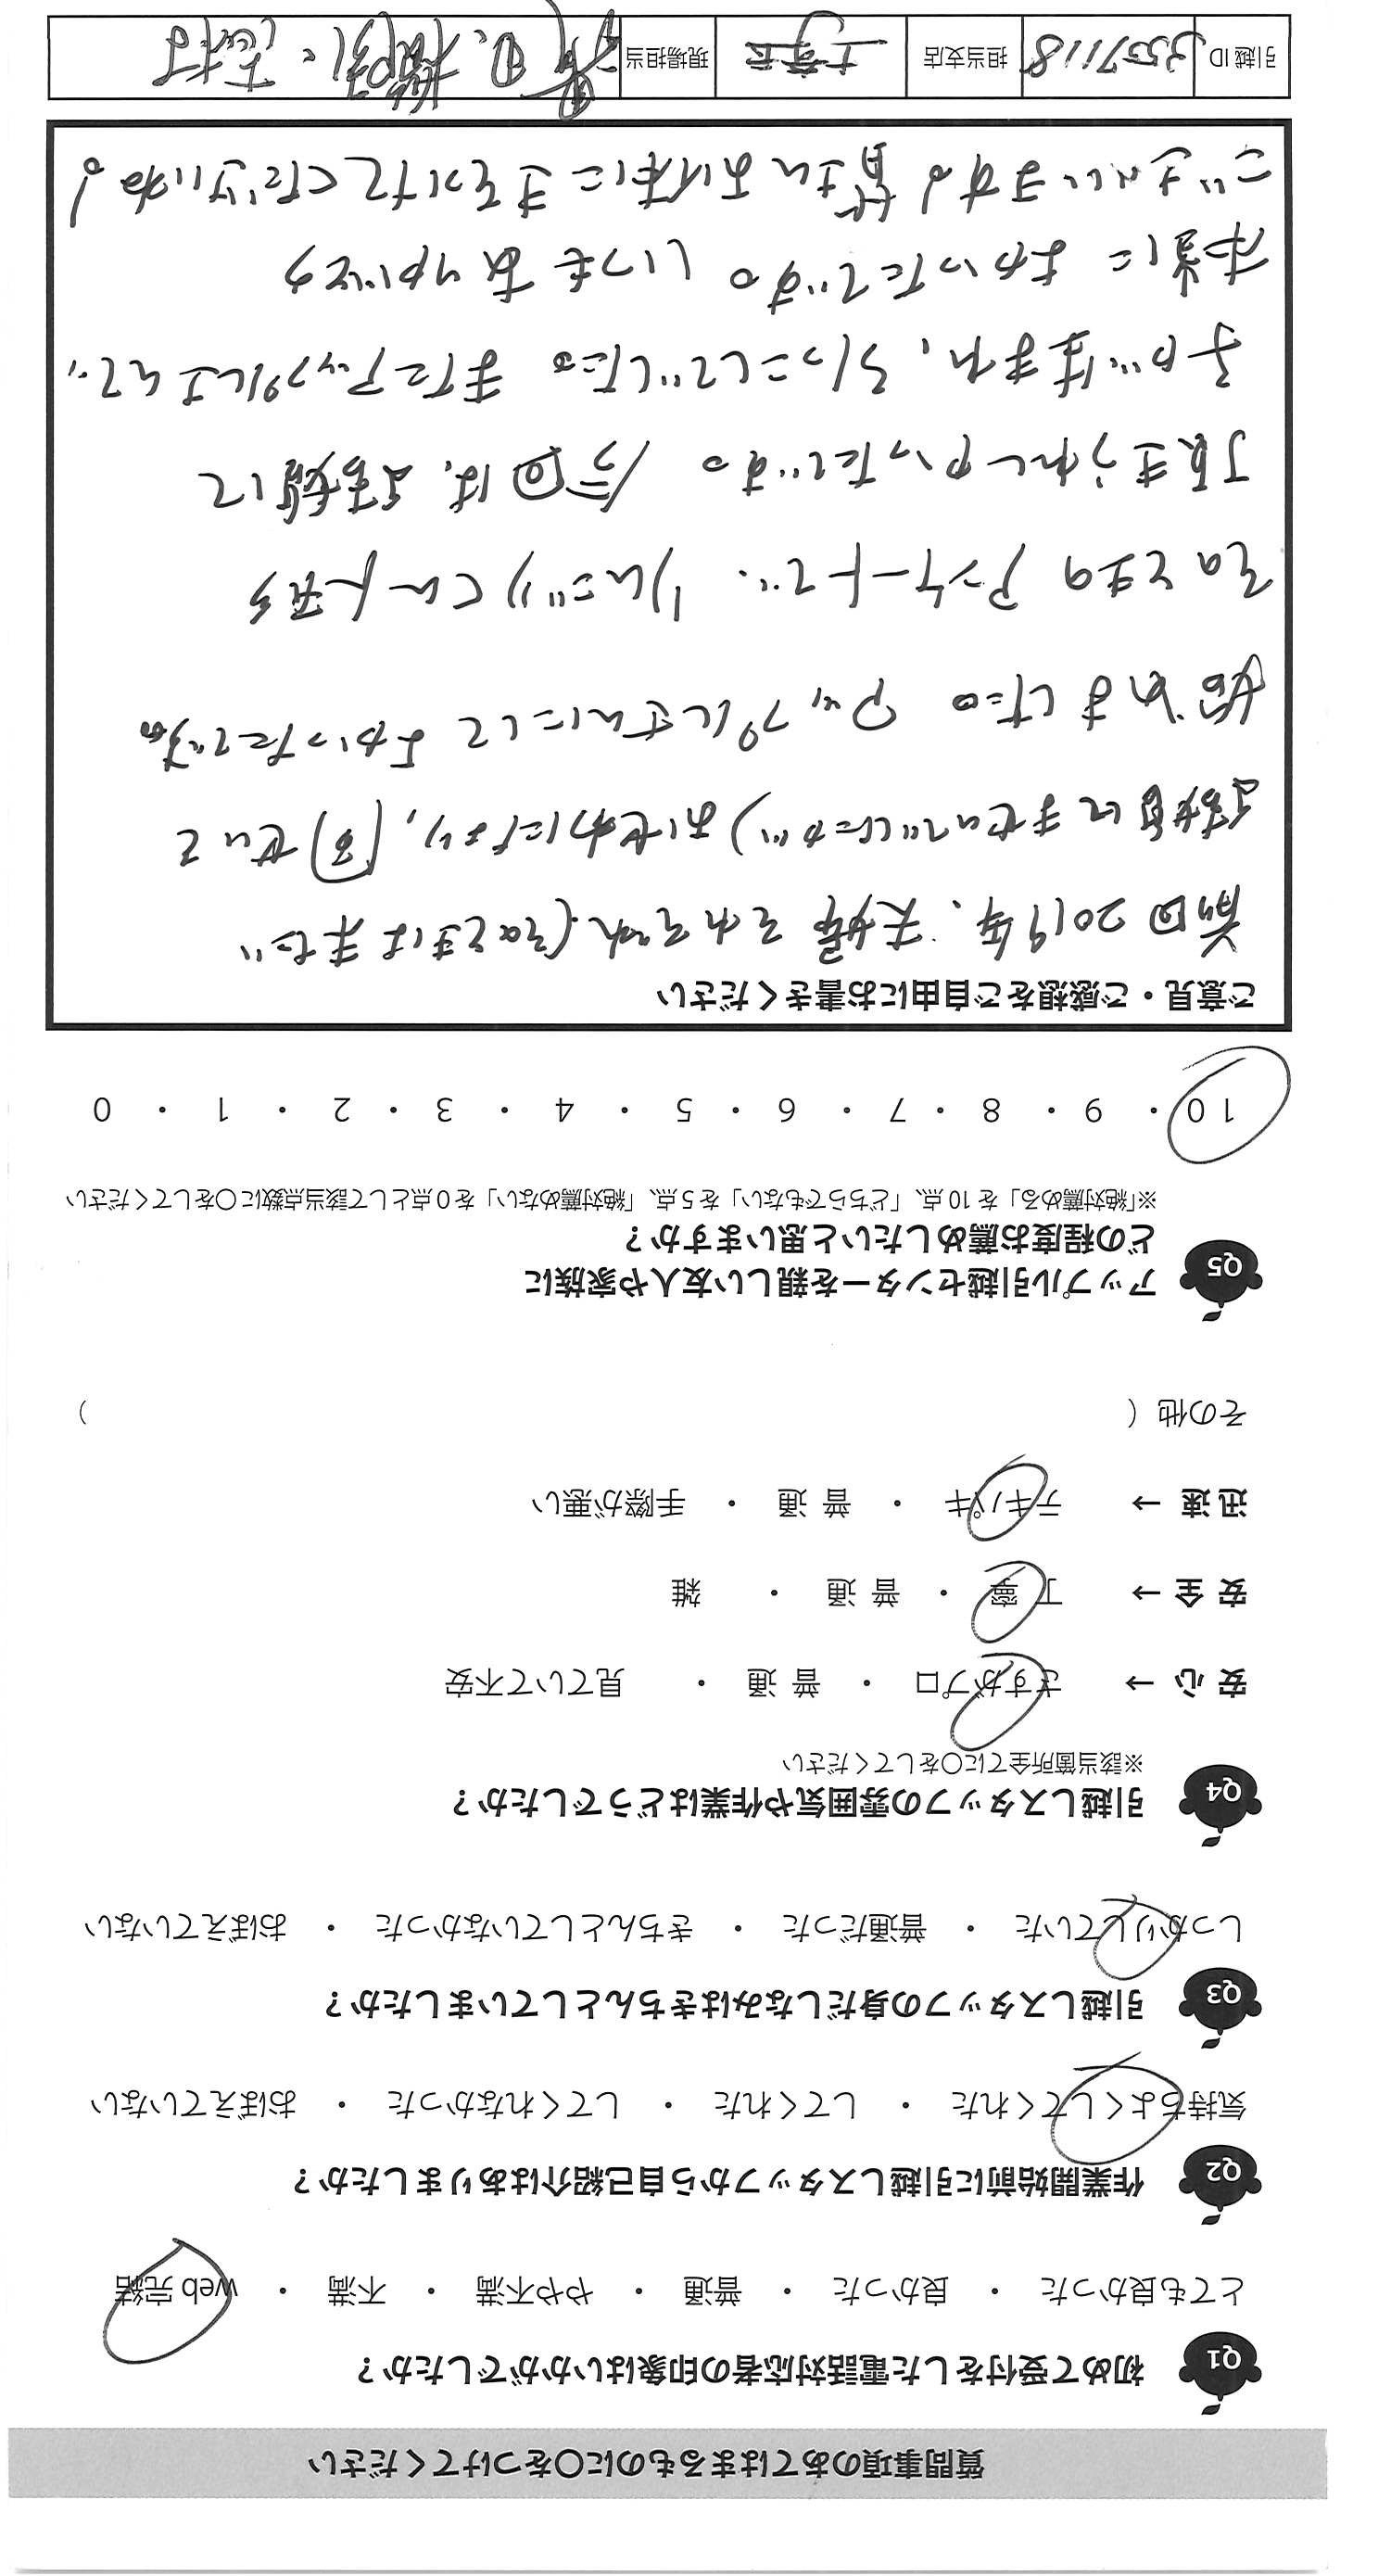 質問事項のあてはまるものに〇をつけてください
Q1 初めて受付をした電話対応者の印象はいかがでしたか？
とても良かった ・ 良かった ・ 普通 ・ やや不満 ・ 不満 ・ web 完結
Q2 作業開始前に引越しスタッフから自己紹介はありましたか？
気持ちよくしてくれた ・ してくれた ・ してくれなかった ・ おぼえていない
Q3 引越しスタッフの身だしなみはきちんとしていましたか？
しっかりしていた ・ 普通だった ・ きちんとしていなかった ・ おぼえていない
Q4 引越しスタッフの雰囲気や作業はどうでしたか？
※該当箇所全てに〇をしてください
安 心 → さすがプロ ・ 普 通 ・ 見ていて不安
安 全 → 丁 寧 ・ 普 通 ・ 雑
迅 速 → テキパキ ・ 普 通 ・ 手際が悪い
その他（ ）
Q5 アップル引越センターを親しい友人や家族に
どの程度お薦めしたいと思いますか？
※「絶対薦める」を 10 点、「どちらでもない」を 5 点、「絶対薦めない」を 0 点として該当点数に〇をしてください
10 ・ 9 ・ 8 ・ 7 ・ 6 ・ 5 ・ 4 ・ 3 ・ 2 ・ 1 ・ 0
ご意見・ご感想をご自由にお書きください
前回2019年、夫婦それぞれ(そのときはまだ
結婚してませんでしたが)おせわになり、同せいを
始めました。アップルさんにしてよかったです。
そのときのアンケートで、りんごりくん人形
頂きうれしかったです。今回は、結婚して
子が生まれ、ひっこしでした。またアップルさんで、
本当によかったです。いつもありがとう
ございます♪皆さんお体にきをつけてくださいね♪
引越 ID 3557118 担当支店 現場担当